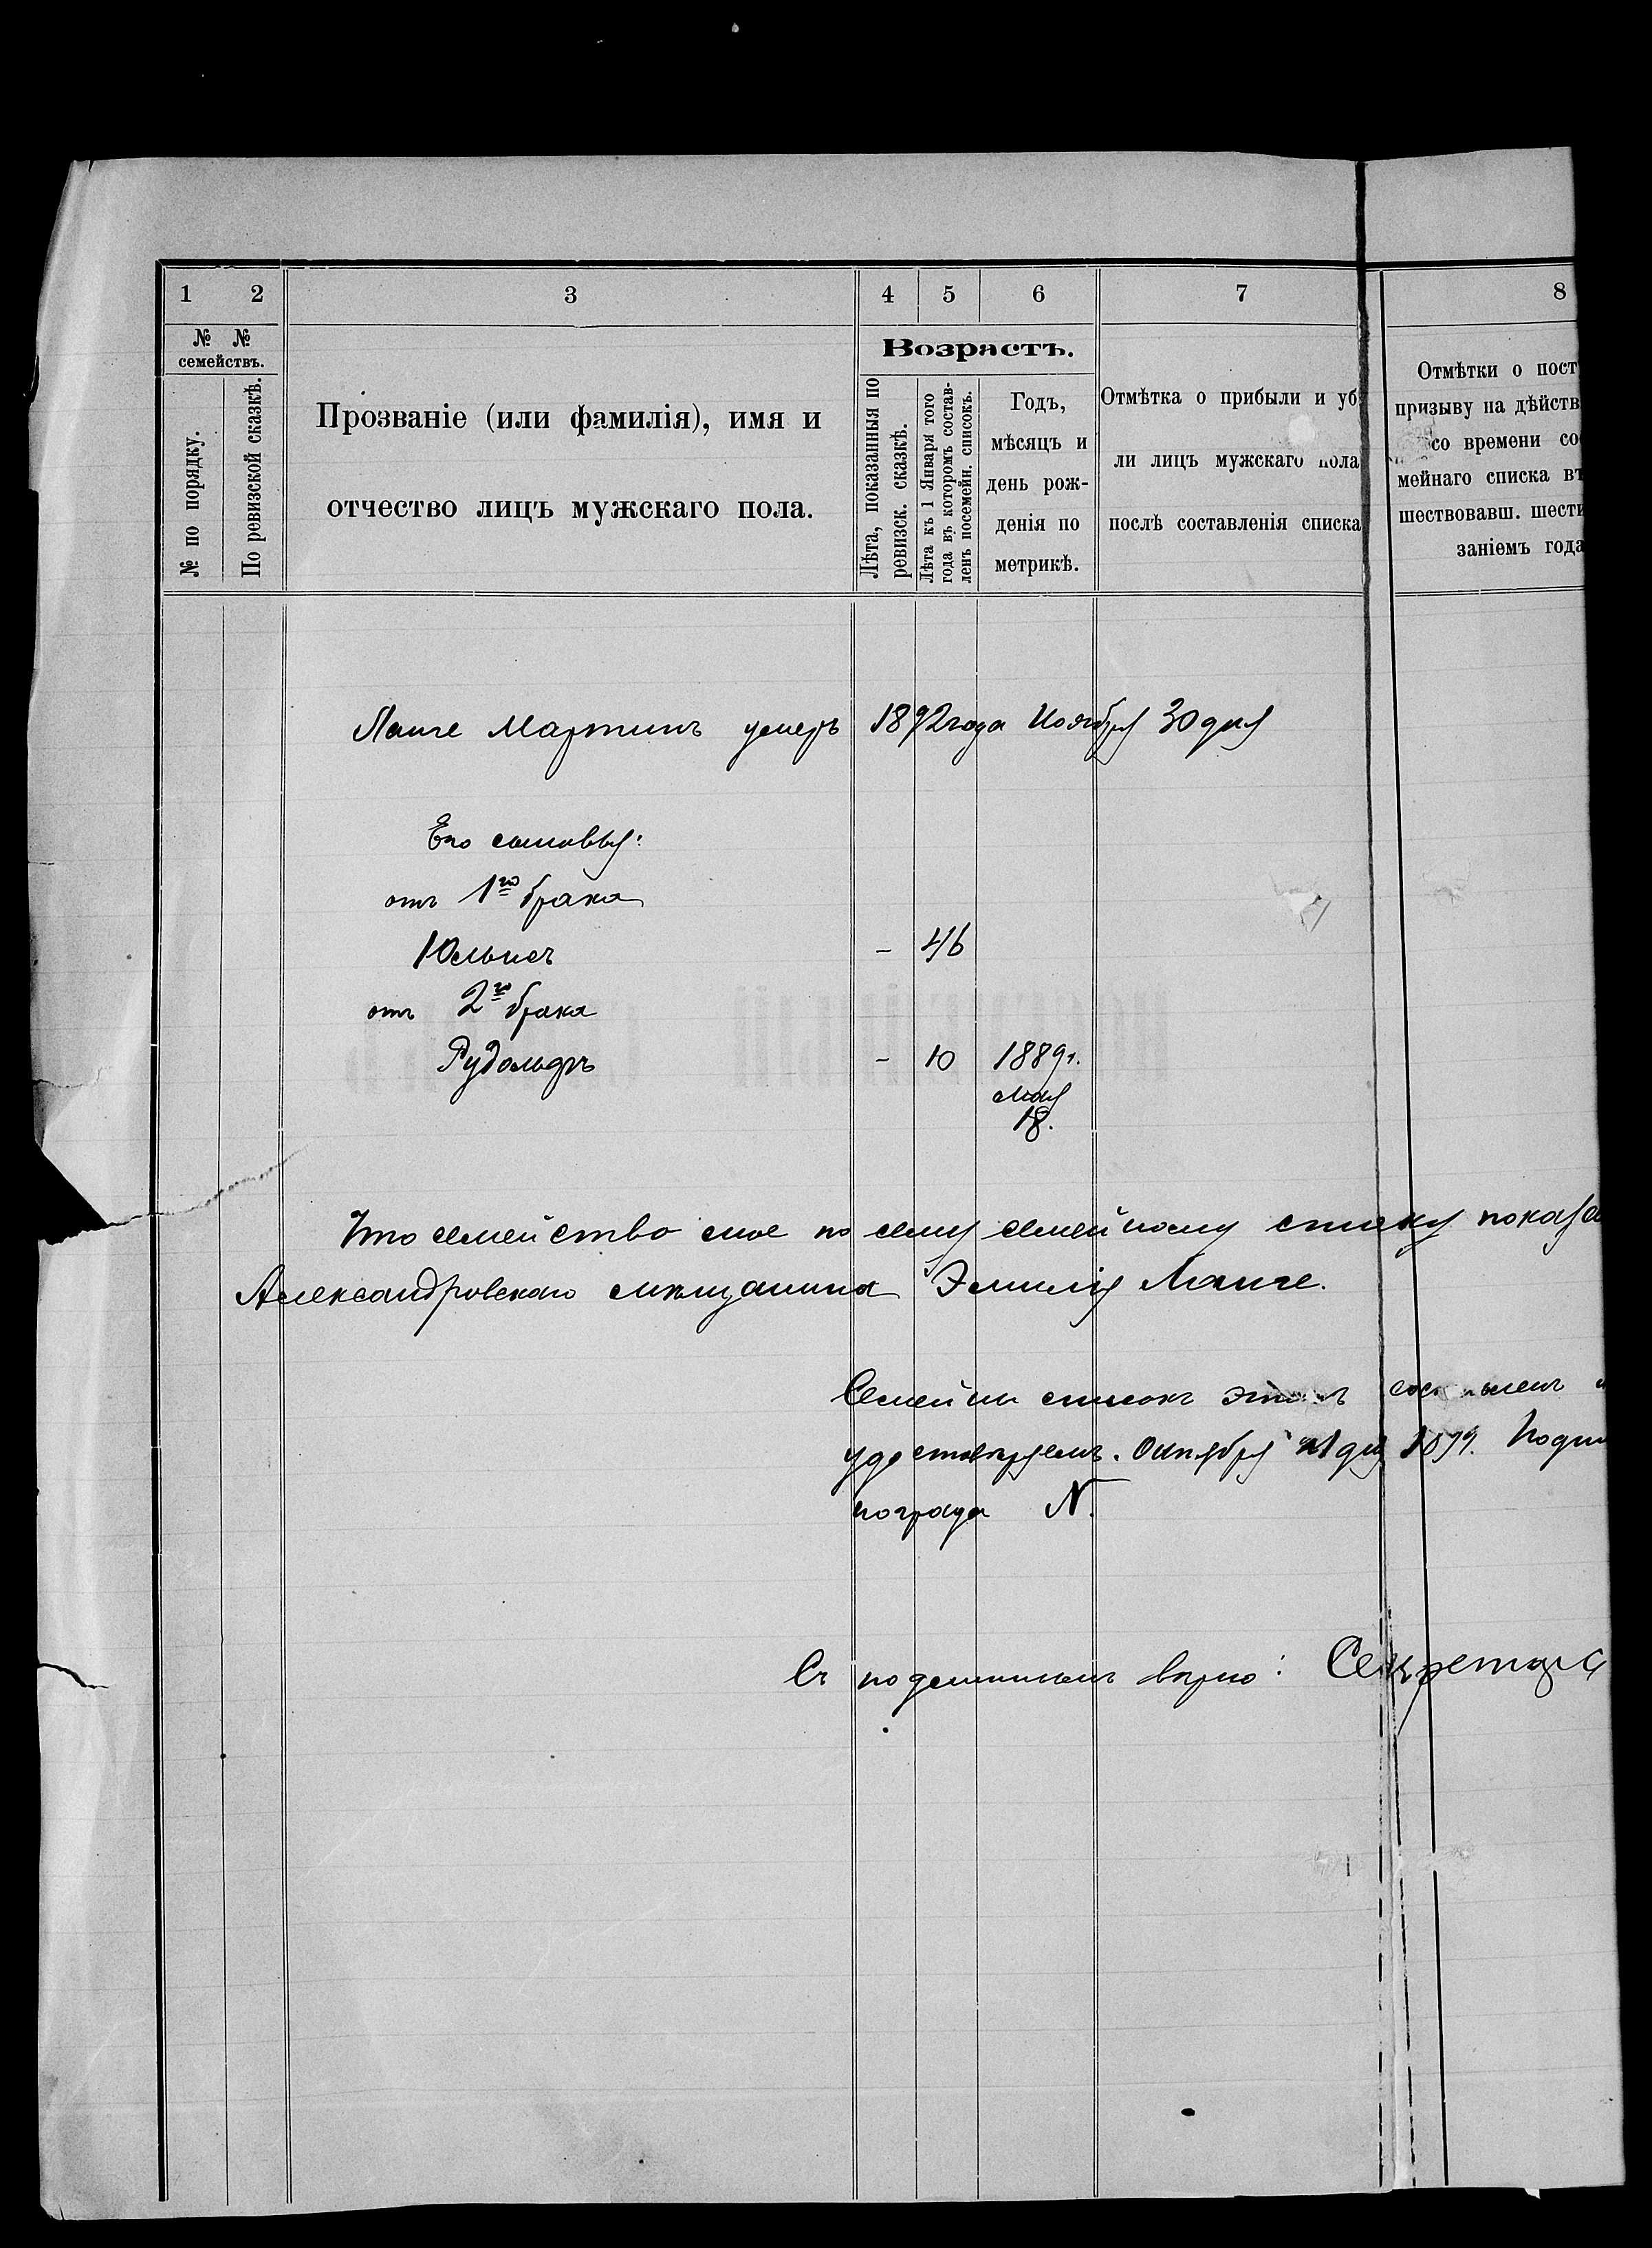 1 2 3 4 5 6 7 8
№ №
семействъ.
№ по порядку.
По ревизской сказкѣ.
Прозваніе (или фамилія), имя и
отчество лицъ мужскаго пола.
Возрастъ.
Лѣта, показанныя по
ревизск. сказкѣ.
Лѣта къ 1 Января того
года въ которомъ состав-
ленъ посемейн. списокъ.
Годъ,
мѣсяцъ и
день рож-
денія по
метрикѣ.
Отмѣтка о прибыли и уб
ли лицъ мужскаго пола
послѣ составленія списка
Отмѣтки о пост
призыву на дѣйств
со времени со
мейнаго списка въ
шествовавш. шести
заніемъ года
Ланге Мартинъ умеръ 1892 года Ноября 30 дня
Его сыновья:
отъ 1го брака
- 46
отъ 2го брака
Рудольфъ - 10 1889г.
мая
18.
Что семейство мое по сему семейному списку показа
Александровскаго мѣщанина Эмилія Ланге.
Семейный списокъ этотъ
удостовѣряемъ. Октября дня Подпи
награда N.
Съ подлиннымъ вѣрно: Секретарь